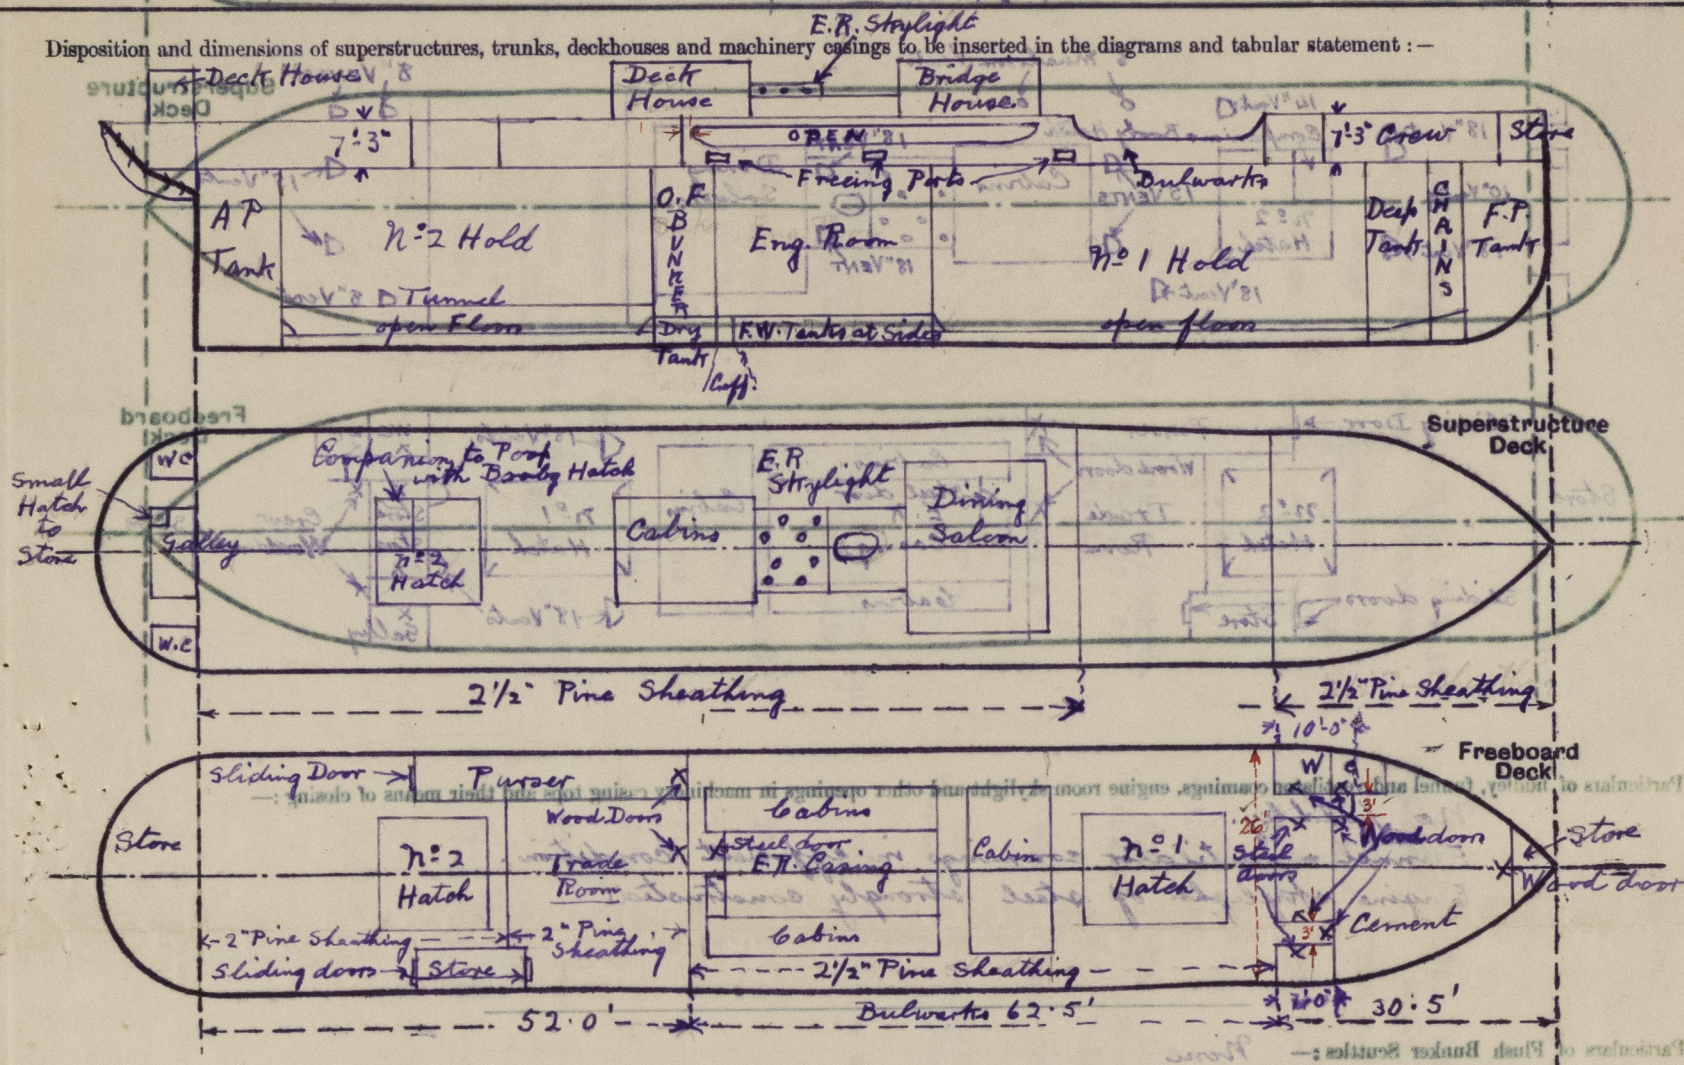 E.R. Skylight
Disposition and dimensions of superstructures, trunks, deckhouses and machinery casings to be inserted in the diagrams and tabular statement :—
Deck House
Deck
House
Bridge
House.
7'-3"
OPEN
7'-3" Crew
Store
Freeing Ports
Bulwarks
A P
Tank
No. 2 Hold
O.F
BUNKER
Eng. Room
No. 1 Hold
Deep
Tank
CHAINS
F.P.
Tank
Tunnel
open Floors
Dry
Tank
F.W. Tanks at Sides
open floors
Coff.
Superstructure
Deck
W C
Companion to Poop
with Booby Hatch
E.R
Skylight
Small
Hatch
to
Store
Galley
No. 2
Hatch
Cabins
Dining
Saloon
W.C
2½" Pine Sheathing
2½" Pine Sheathing
10'-0"
Freeboard
Deck
Sliding Door
Purser
W C
Wood Doors
Cabins
3'
Store
No. 2
Hatch
Trade
Room
Steel door
E.R. Casing
Cabin
No. 1
Hatch
26'
Steel
doors
Wood doors
Store
Wood door
2" Pine Sheathing
2" Pine
Sheathing
Cabins
3'
Cement
Sliding doors
Store
2½" Pine Sheathing
52.0'
Bulwarks 62.5'
7'-0"
30.5'